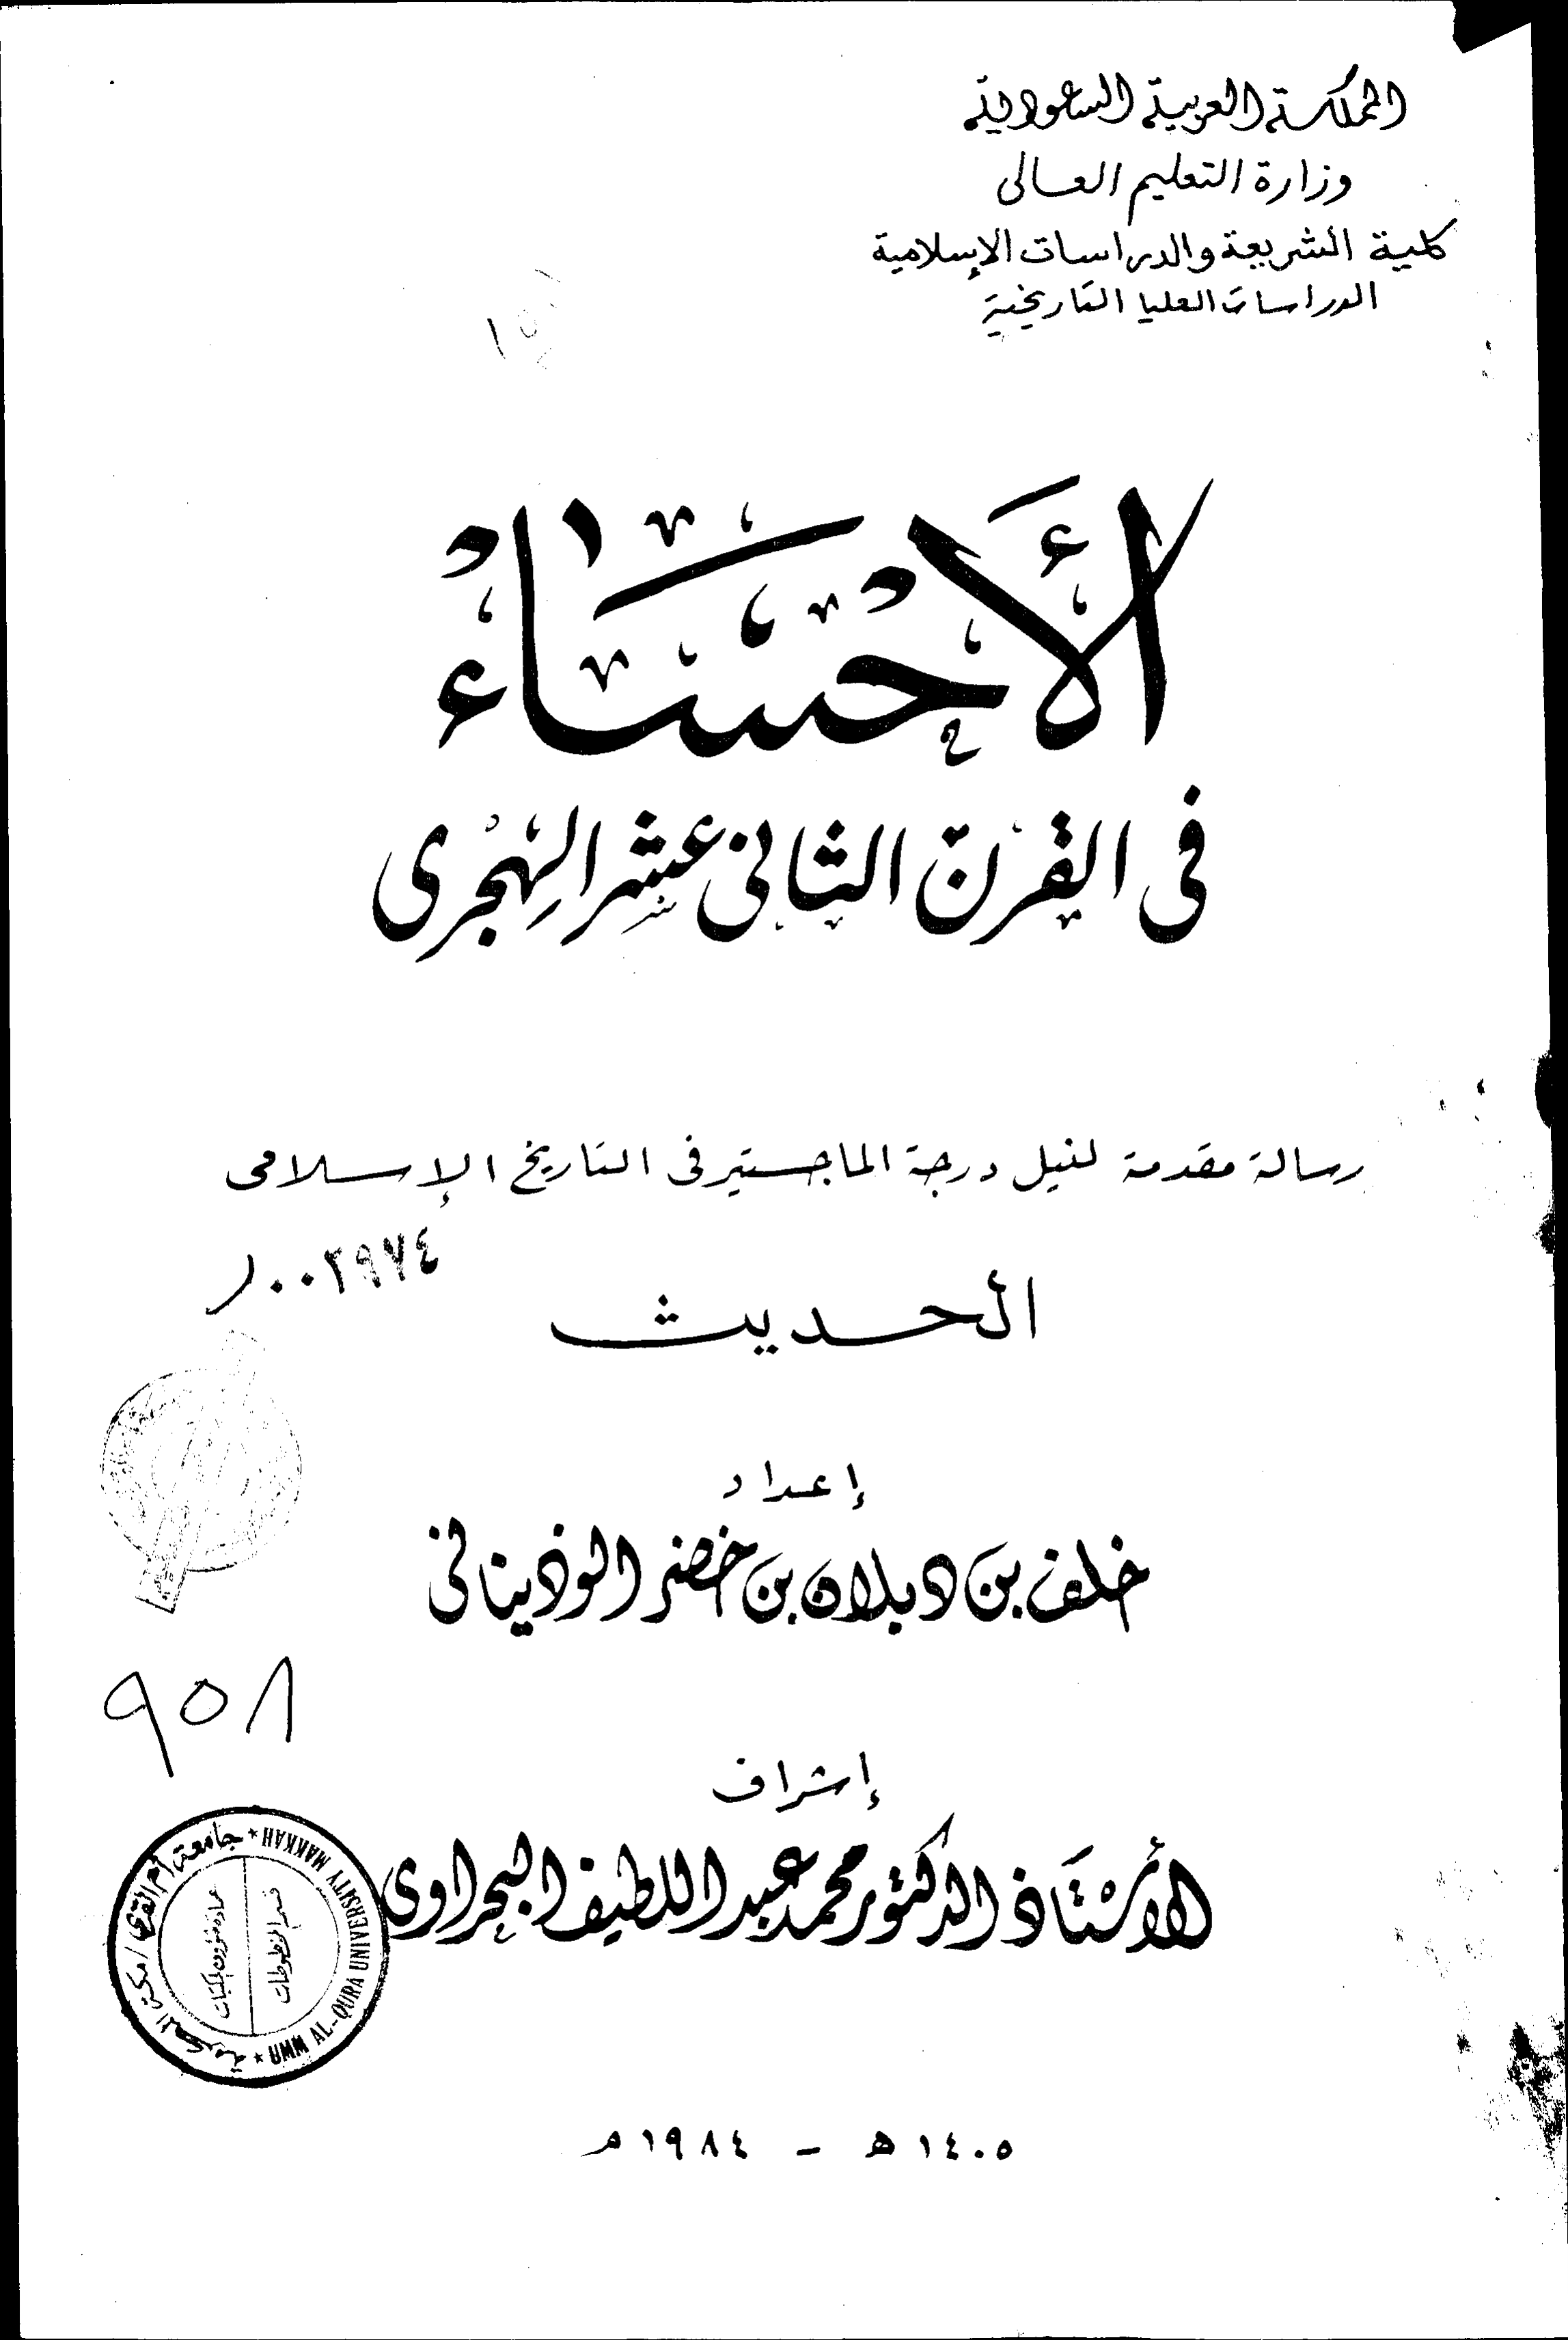 المملكة العربية السعودية
وزارة التعليم العالى
كلية الشريعة والدراسات الإسلامية
الدراسات العليا التاريخية
الأَحْسَاءُ
فى القرن الثانى عشر الهجرى
رسالة مقدمة لنيل درجة الماجستير فى التاريخ الإسلامى
١٠٠٢٩٧٤
الحديث
إعداد
خلف بن دبلان بن خضر الوذينانى
٩٥٨
إشراف
الأستاذ الدكتور محمد عبد اللطيف البحراوى
جامعة أم القرى / مكة المكرمة
UMM AL-QURA UNIVERSITY MAKKAH
عمادة شؤون المكتبات
قسم المخطوطات
١٤٠٥ هـ - ١٩٨٤ م